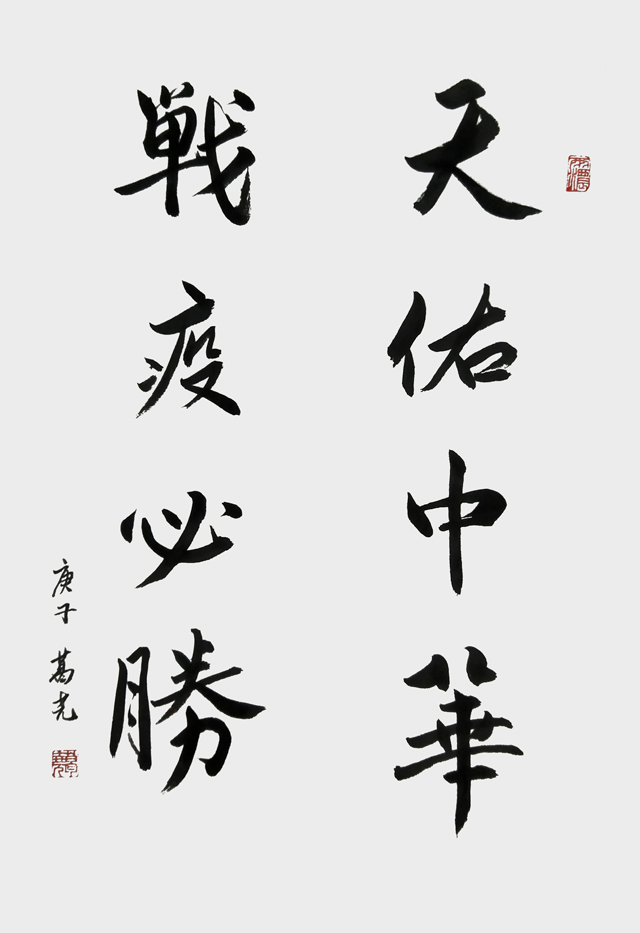 天佑中華
戦疫必勝
庚子 葛尧